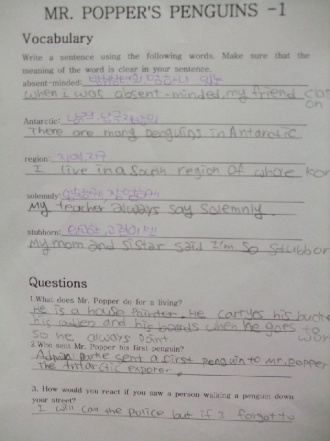 MR. POPPER'S PENGUINS -1
Vocabulary
Write a sentence using the following words. Make sure that the
meaning of the word is clear in your sentence.
absent-minded:
when i was absent-minded, my friend
on
Antarctic:
There are many penguins in Antarctic
region: 지역, 지구
I live in a South region of whole kor
solemnly:
My teacher always say Solemnly.
stubborn:
My mom and sistar said I'm so stubbor
Questions
1.What does Mr. Popper do for a living?
He is a house Painter. He carryes his
his ladder and his boards when he goes to
so he always paint. wor
2.Who sent Mr. Popper his first penguin?
sent a first penguin to mr.popper
the antarctic exporer.
3. How would you react if you saw a person walking a penguin down
your street?
I will call the police but if I forgot to